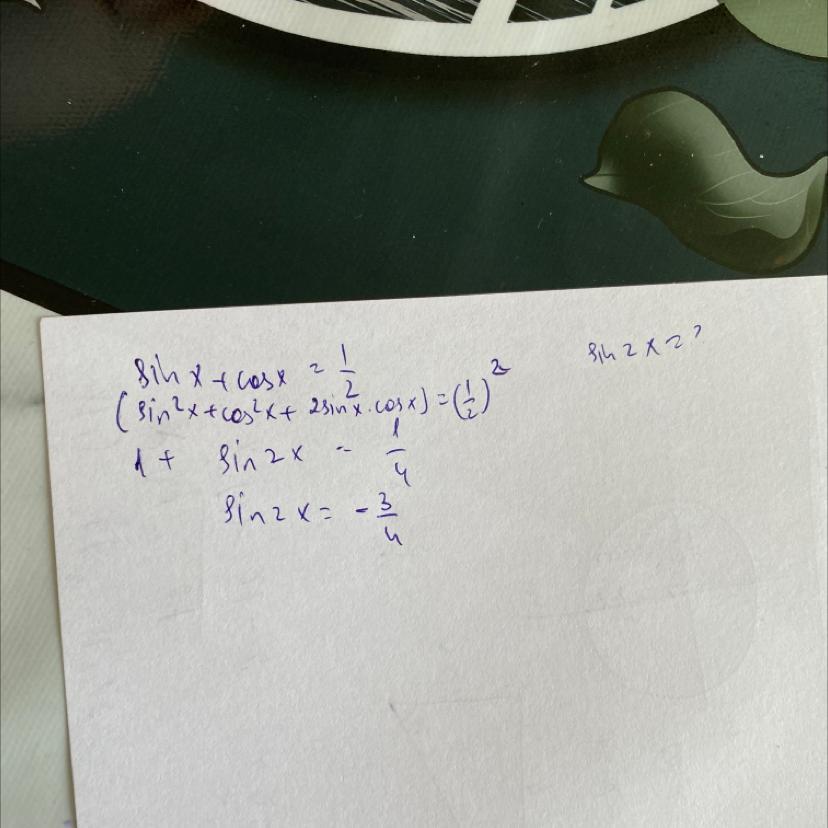 sin x + cos x = 1/2
sin 2x = ?
(sin²x + cos²x + 2sin x · cos x) = (1/2)²
1 + sin 2x = 1/4
sin 2x = - 3/4